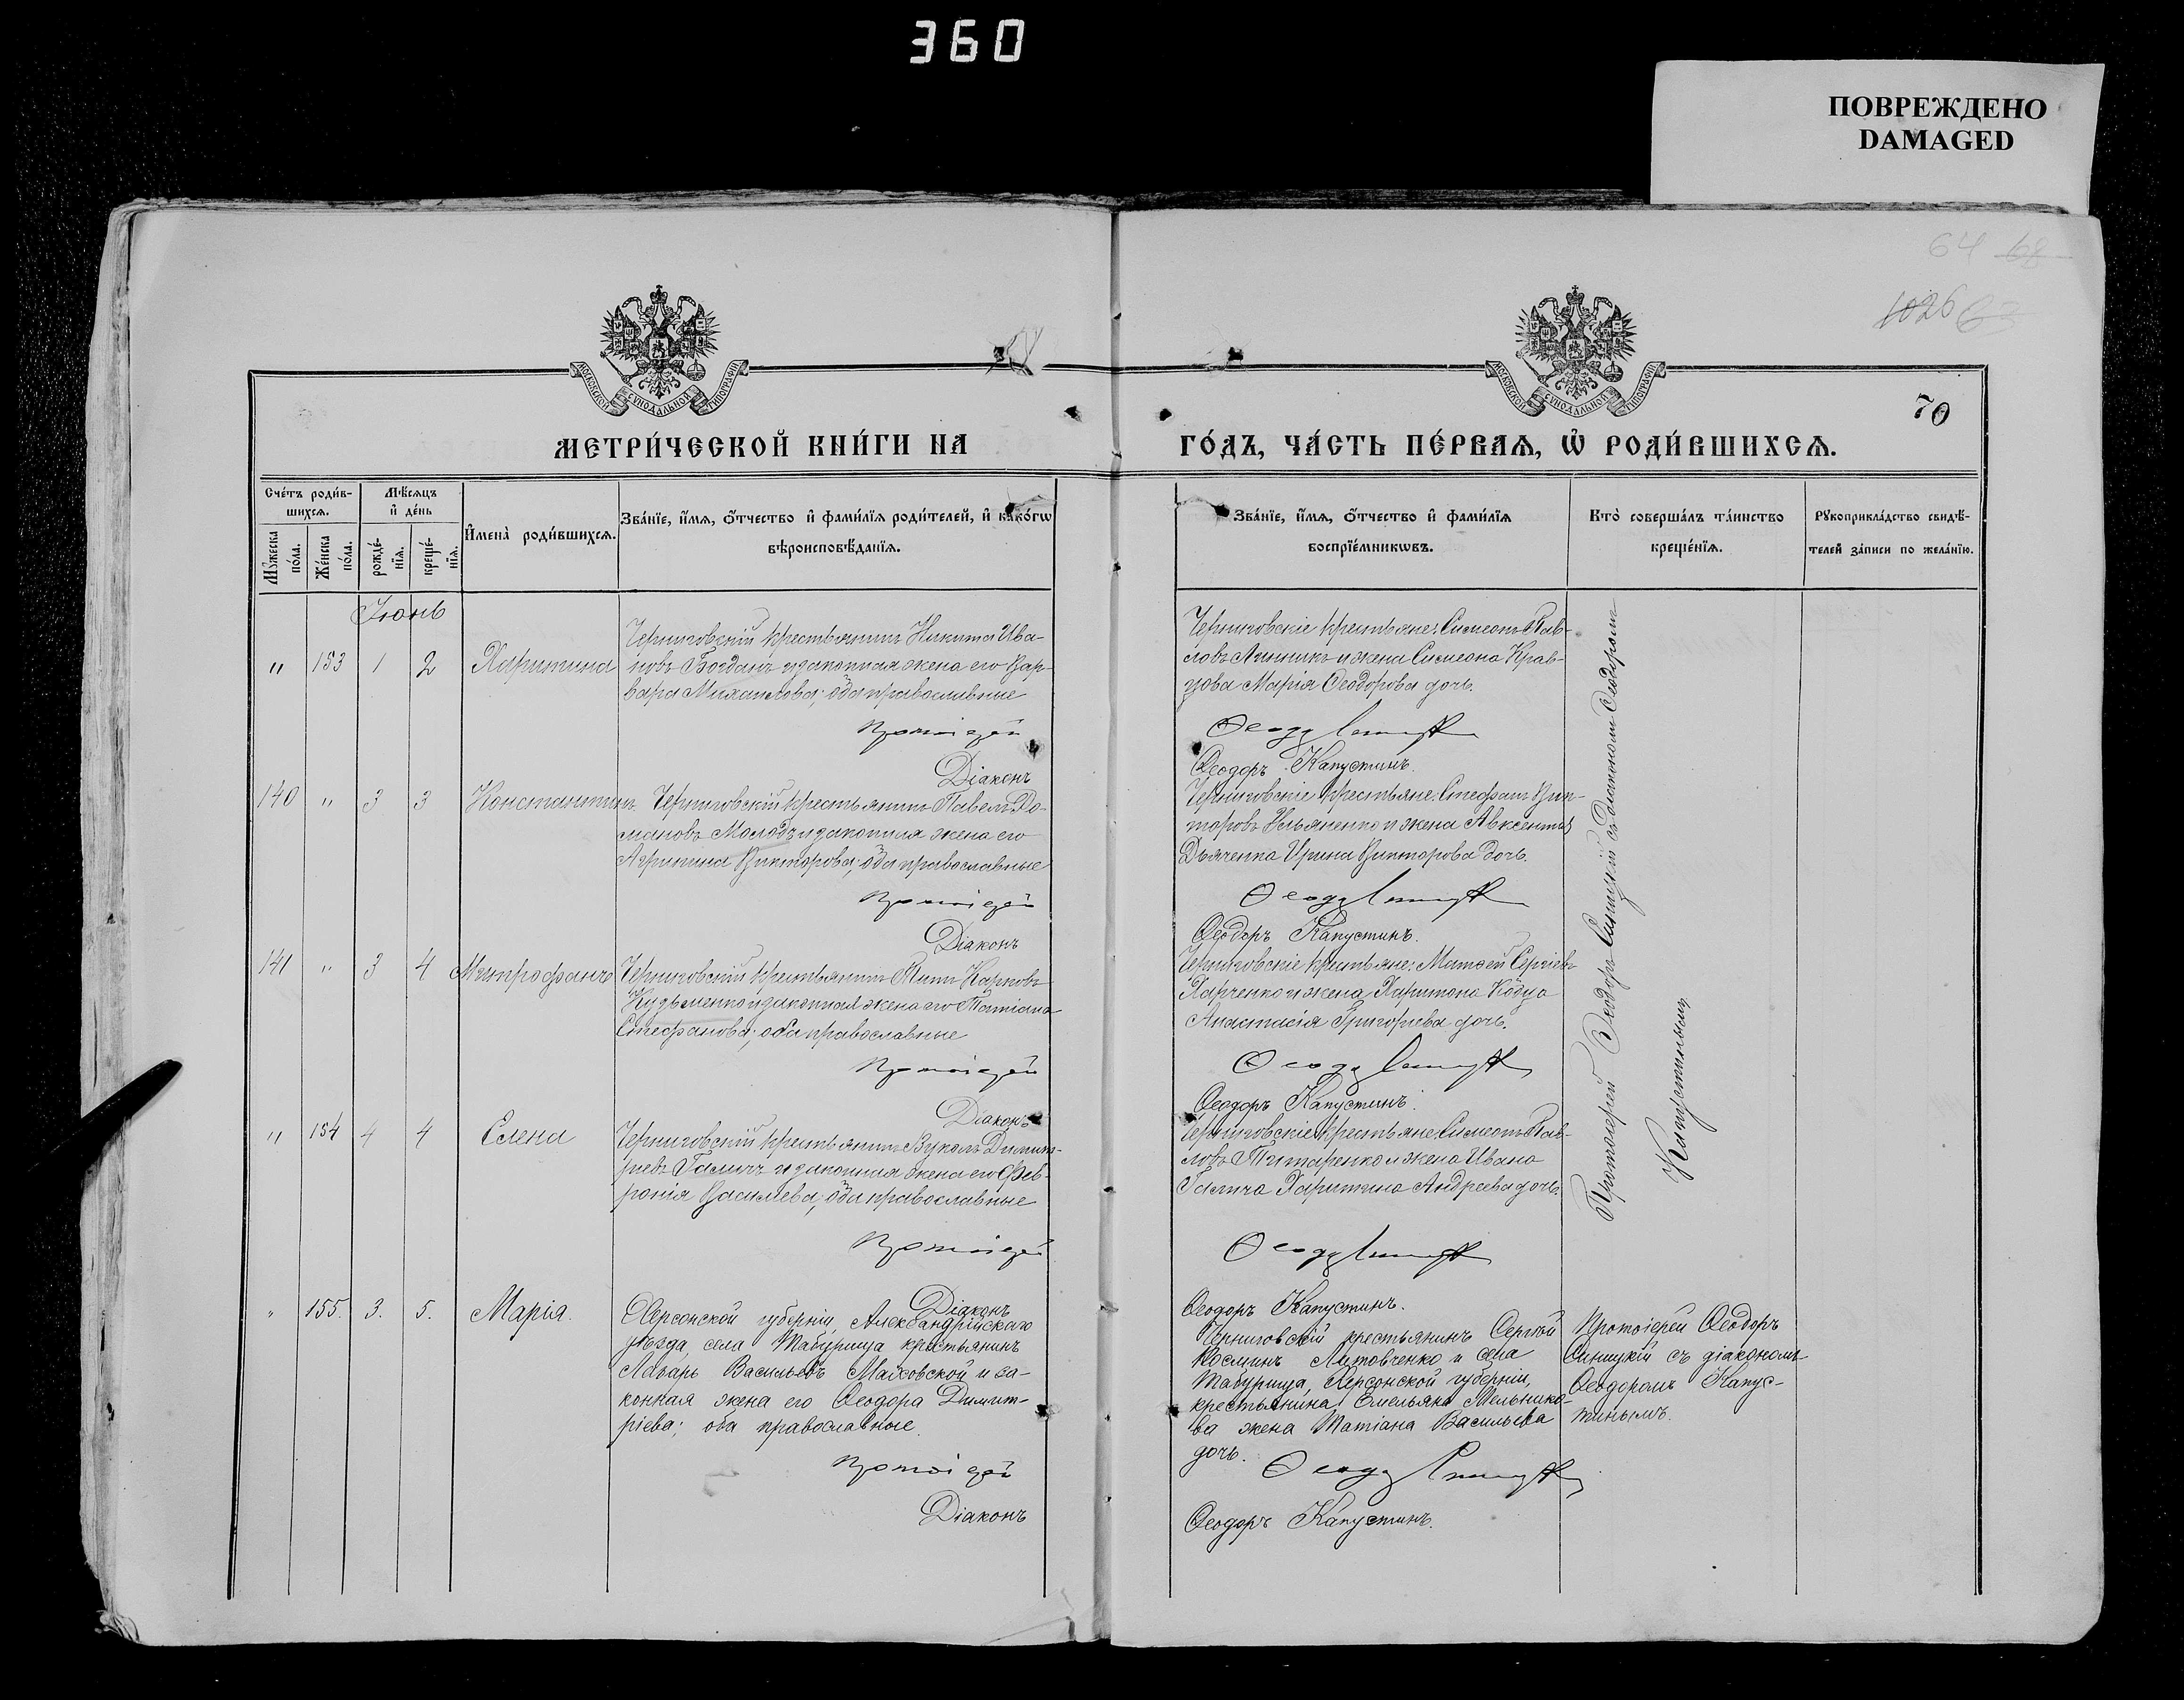 360
ПОВРЕЖДЕНО
DAMAGED
64 68
1026 63
70
МОСКОВСКОЙ СѴНОДАЛЬНОЙ ТИПОГРАФІИ
МОСКОВСКОЙ СѴНОДАЛЬНОЙ ТИПОГРАФІИ
МЕТРИ́ЧЕСКОЙ КНИ́ГИ НА
ГО́ДЪ, ЧА́СТЬ ПЕ́РВАѦ, Ѡ҆ РОДИ́ВШИХСѦ.
Сче́тъ роди́в-
шихсѧ.
Мꙋ́жеска по́ла.
Же́нска по́ла.
Мѣ́сѧцъ
и҆ де́нь
рожде́-
нїѧ.
креще́-
нїѧ.
И҆мена̀ роди́вшихсѧ.
Зва́нїе, и҆́мѧ, ѻ҆́тчество и҆ фами́лїѧ роди́телей, и҆ како́гѡ
вѣроисповѣ́данїѧ.
Зва́нїе, и҆́мѧ, ѻ҆́тчество и҆ фами́лїѧ
воспрїе́мникѡвъ.
Кто̀ соверша́лъ та́инство
креще́нїѧ.
Рꙋкоприкла́дство свидѣ́-
телей за́писи по жела́нїю.
Іюнь
" 153 1 2 Харитина
Черниговскій крестьянинъ Никита Ива-
новъ Богданъ и законная жена его Вар-
вара Михаилова; оба православные
Протоіерей
Діаконъ
Черниговскіе крестьяне: Симеонъ Пав-
ловъ Линникъ и жена Симеона Крав-
цова Марія Ѳеодорова дочь.
Ѳеодоръ Синицкій
Ѳеодоръ Капустинъ.
140 " 3 3 Константинъ
Черниговскій крестьянинъ Павелъ До-
мановъ Молодъ и законная жена его
Агрипина Викторова; оба православные
Протоіерей
Діаконъ
Черниговскіе крестьяне: Стефанъ Вик-
торовъ Ульяненко и жена Авксентія
Дьяченка Ирина Викторова дочь.
Ѳеодоръ Синицкій
Ѳеодоръ Капустинъ.
141 " 3 4 Митрофанъ
Черниговскій крестьянинъ Титъ Карповъ
Кузьменко и законная жена его Татіана
Стефанова; оба православные
Протоіерей
Діаконъ
Черниговскіе крестьяне: Матѳей Сергіевъ
Харченко и жена Харитона Кобца
Анастасія Григорьева дочь.
Ѳеодоръ Синицкій
Ѳеодоръ Капустинъ.
" 154 4 4 Елена
Черниговскій крестьянинъ Вуколъ Димит-
ріевъ Галичъ и законная жена его Фев-
ронія Васильева; оба православные
Протоіерей
Діаконъ
Черниговскіе крестьяне Симеонъ Пав-
ловъ Титаренко и жена Ивана
Галича Харитина Андреева дочь.
Ѳеодоръ Синицкій
Ѳеодоръ Капустинъ.
Протоіерей Ѳеодоръ Синицкій съ діакономъ Ѳеодоромъ
Капустинымъ
" 155. 3. 5. Марія.
Херсонской губерніи, Александрійскаго
уѣзда, села Табурища крестьянинъ
Лазарь Васильевъ Маховской и за-
конная жена его Ѳеодора Димит-
ріева; оба православные.
Протоіерей
Діаконъ
Черниговскій крестьянинъ Сергій
Косминъ Литовченко и села
Табурища, Херсонской губерніи,
крестьянина Емельяна Мельнико-
ва жена Татіана Васильева
дочь.
Ѳеодоръ Синицкій
Ѳеодоръ Капустинъ.
Протоіерей Ѳеодоръ
Синицкій съ діакономъ
Ѳеодоромъ Капус-
тинымъ.